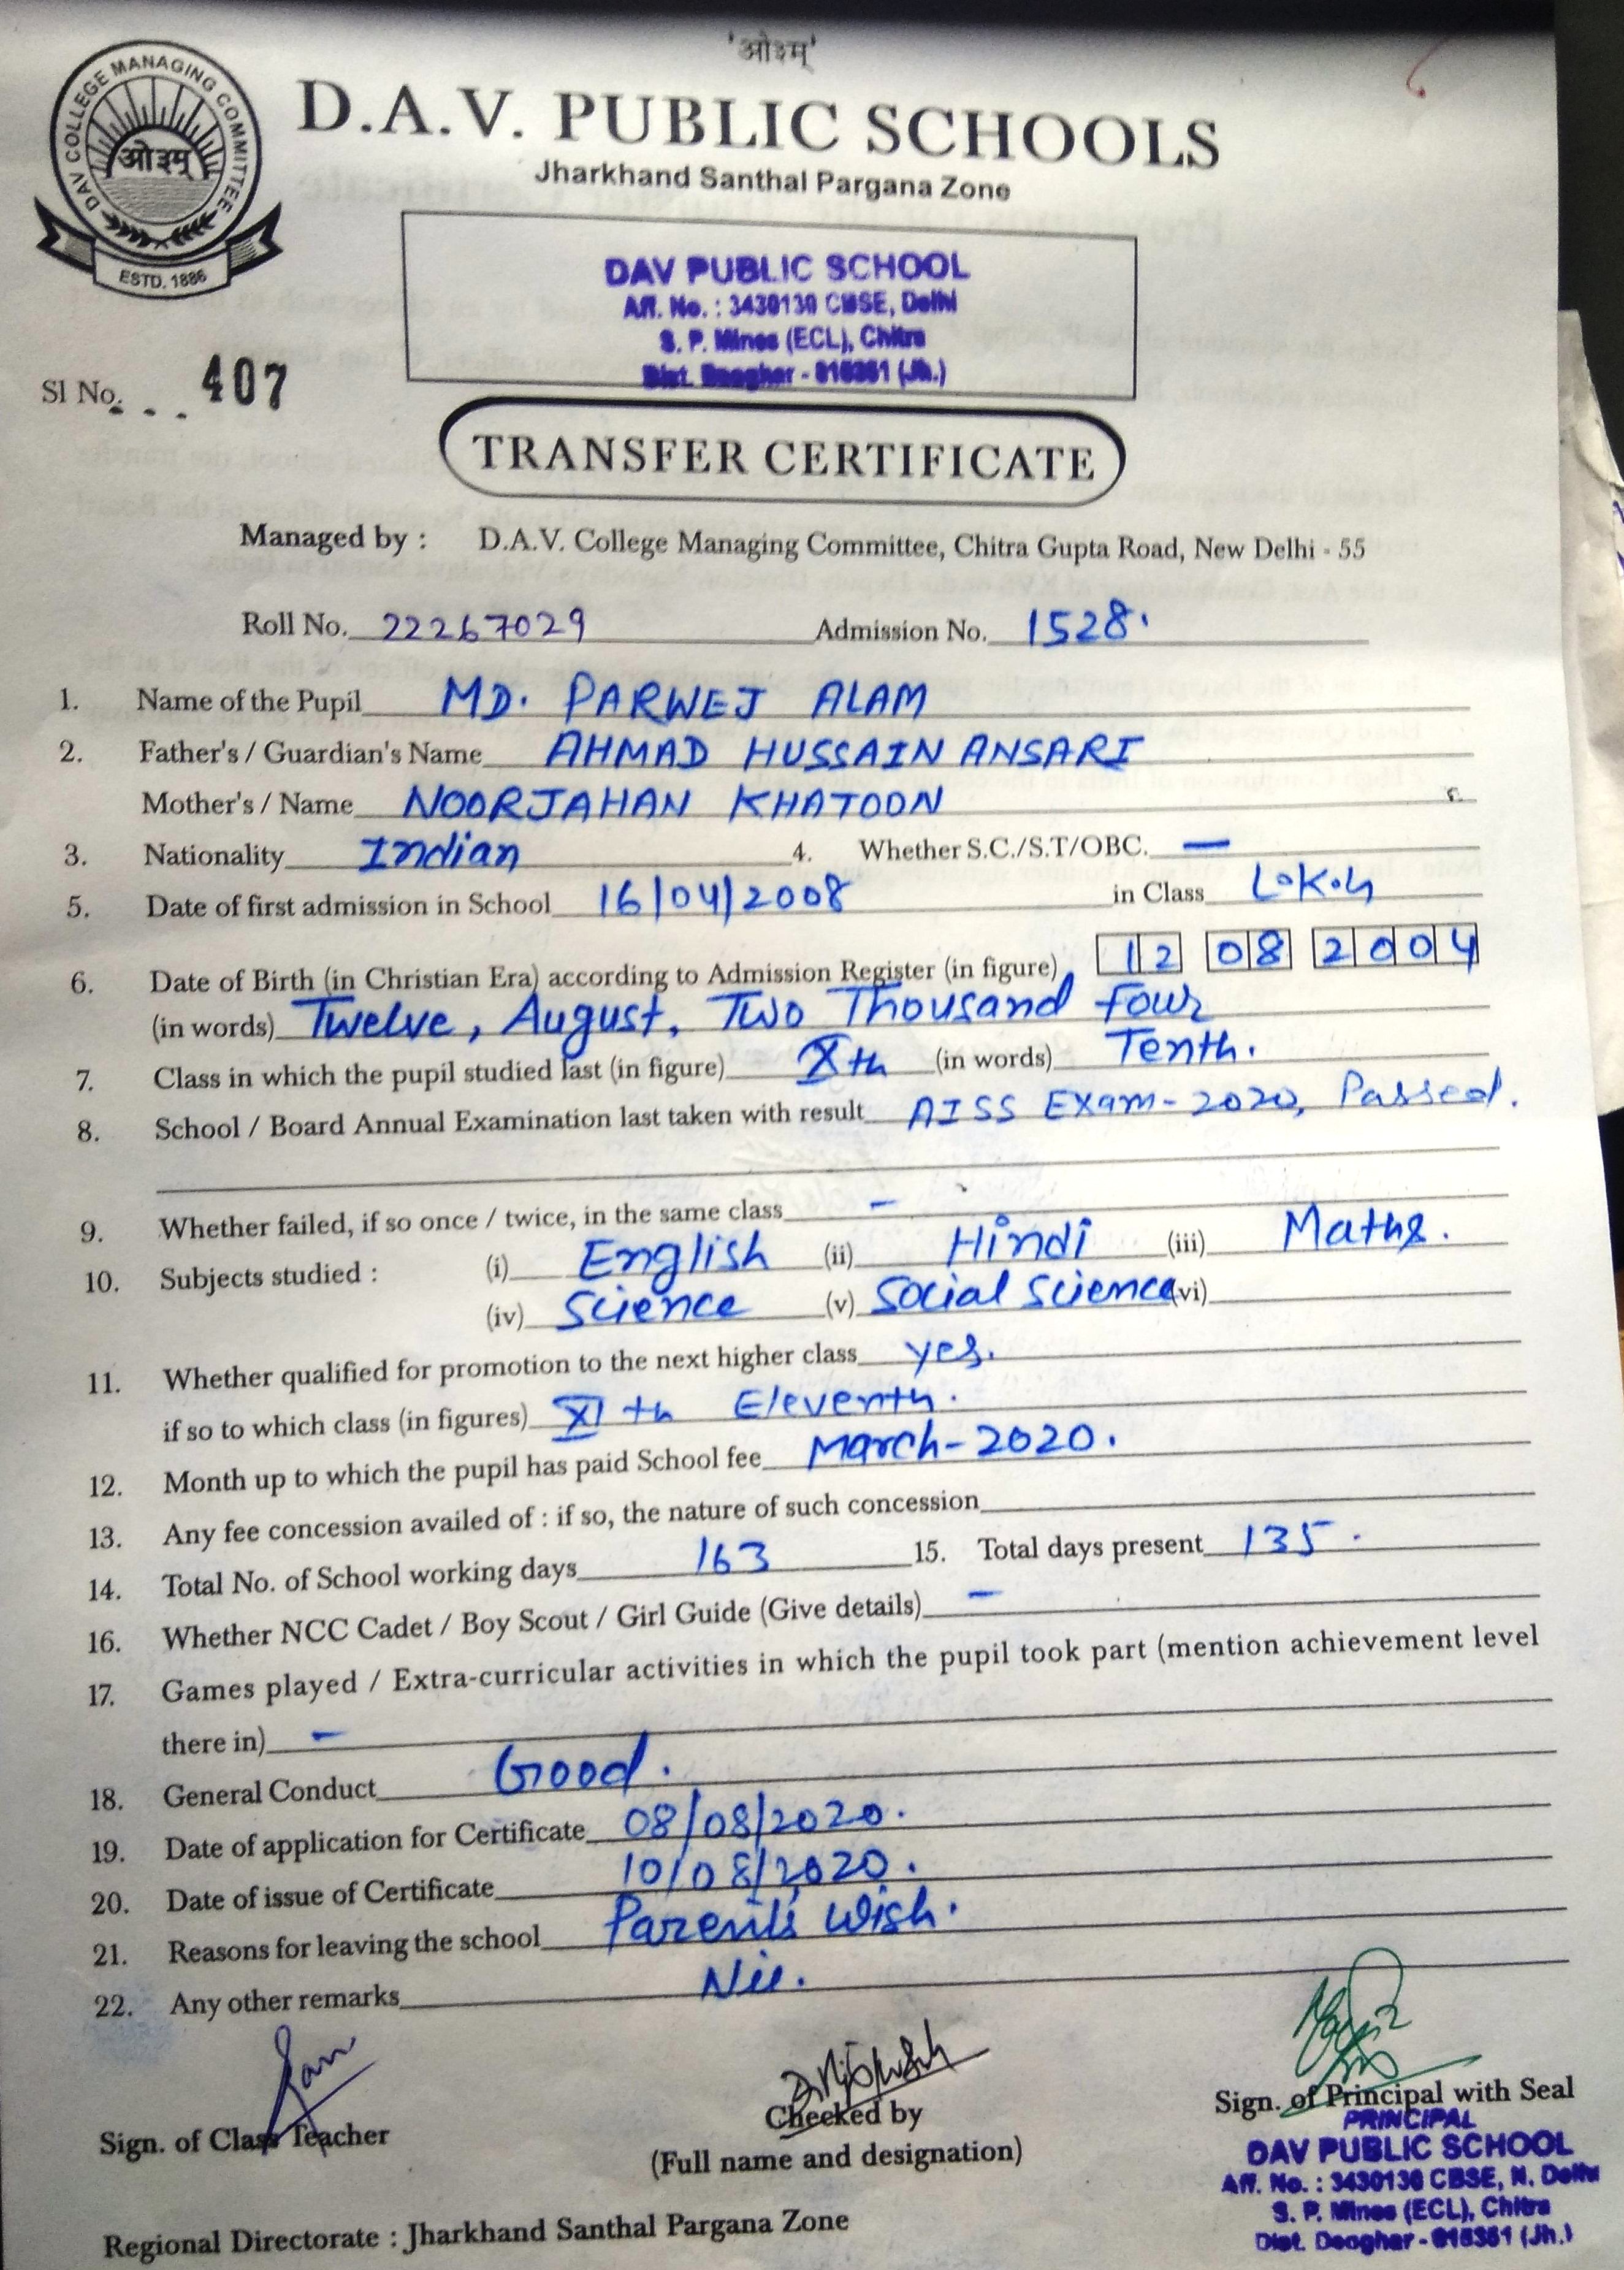 'ओ३म्'
DAV COLLEGE MANAGING COMMITTEE
ओ३म्
ESTD. 1886
D.A.V. PUBLIC SCHOOLS
Jharkhand Santhal Pargana Zone
DAV PUBLIC SCHOOL
Aff. No. : 3430130 CBSE, Delhi
S. P. Mines (ECL), Chitra
Dist. Deoghar - 815351 (Jh.)
Sl No. 407
TRANSFER CERTIFICATE
Managed by : D.A.V. College Managing Committee, Chitra Gupta Road, New Delhi - 55
Roll No. 22267029 Admission No. 1528.
1. Name of the Pupil MD. PARWEJ ALAM
2. Father's / Guardian's Name AHMAD HUSSAIN ANSARI
Mother's / Name NOORJAHAN KHATOON
3. Nationality Indian 4. Whether S.C./S.T/OBC. —
5. Date of first admission in School 16/04/2008 in Class L.K.G
6. Date of Birth (in Christian Era) according to Admission Register (in figure) 12 08 2004
(in words) Twelve, August, Two Thousand Four
7. Class in which the pupil studied last (in figure) Xth (in words) Tenth.
8. School / Board Annual Examination last taken with result AISS Exam-2020, Passed.
9. Whether failed, if so once / twice, in the same class –
10. Subjects studied : (i) English (ii) Hindi (iii) Maths.
(iv) Science (v) Social Science (vi)
11. Whether qualified for promotion to the next higher class yes.
if so to which class (in figures) XIth Eleventh.
12. Month up to which the pupil has paid School fee March-2020.
13. Any fee concession availed of : if so, the nature of such concession
14. Total No. of School working days 163 15. Total days present 135.
16. Whether NCC Cadet / Boy Scout / Girl Guide (Give details) –
17. Games played / Extra-curricular activities in which the pupil took part (mention achievement level
there in) –
18. General Conduct Good.
19. Date of application for Certificate 08/08/2020.
20. Date of issue of Certificate 10/08/2020.
21. Reasons for leaving the school Parent's Wish.
22. Any other remarks Nil.
Sign. of Class Teacher
Checked by
(Full name and designation)
Sign. of Principal with Seal
PRINCIPAL
DAV PUBLIC SCHOOL
Aff. No. : 3430130 CBSE, N. Delhi
S. P. Mines (ECL), Chitra
Dist. Deoghar - 815351 (Jh.)
Regional Directorate : Jharkhand Santhal Pargana Zone